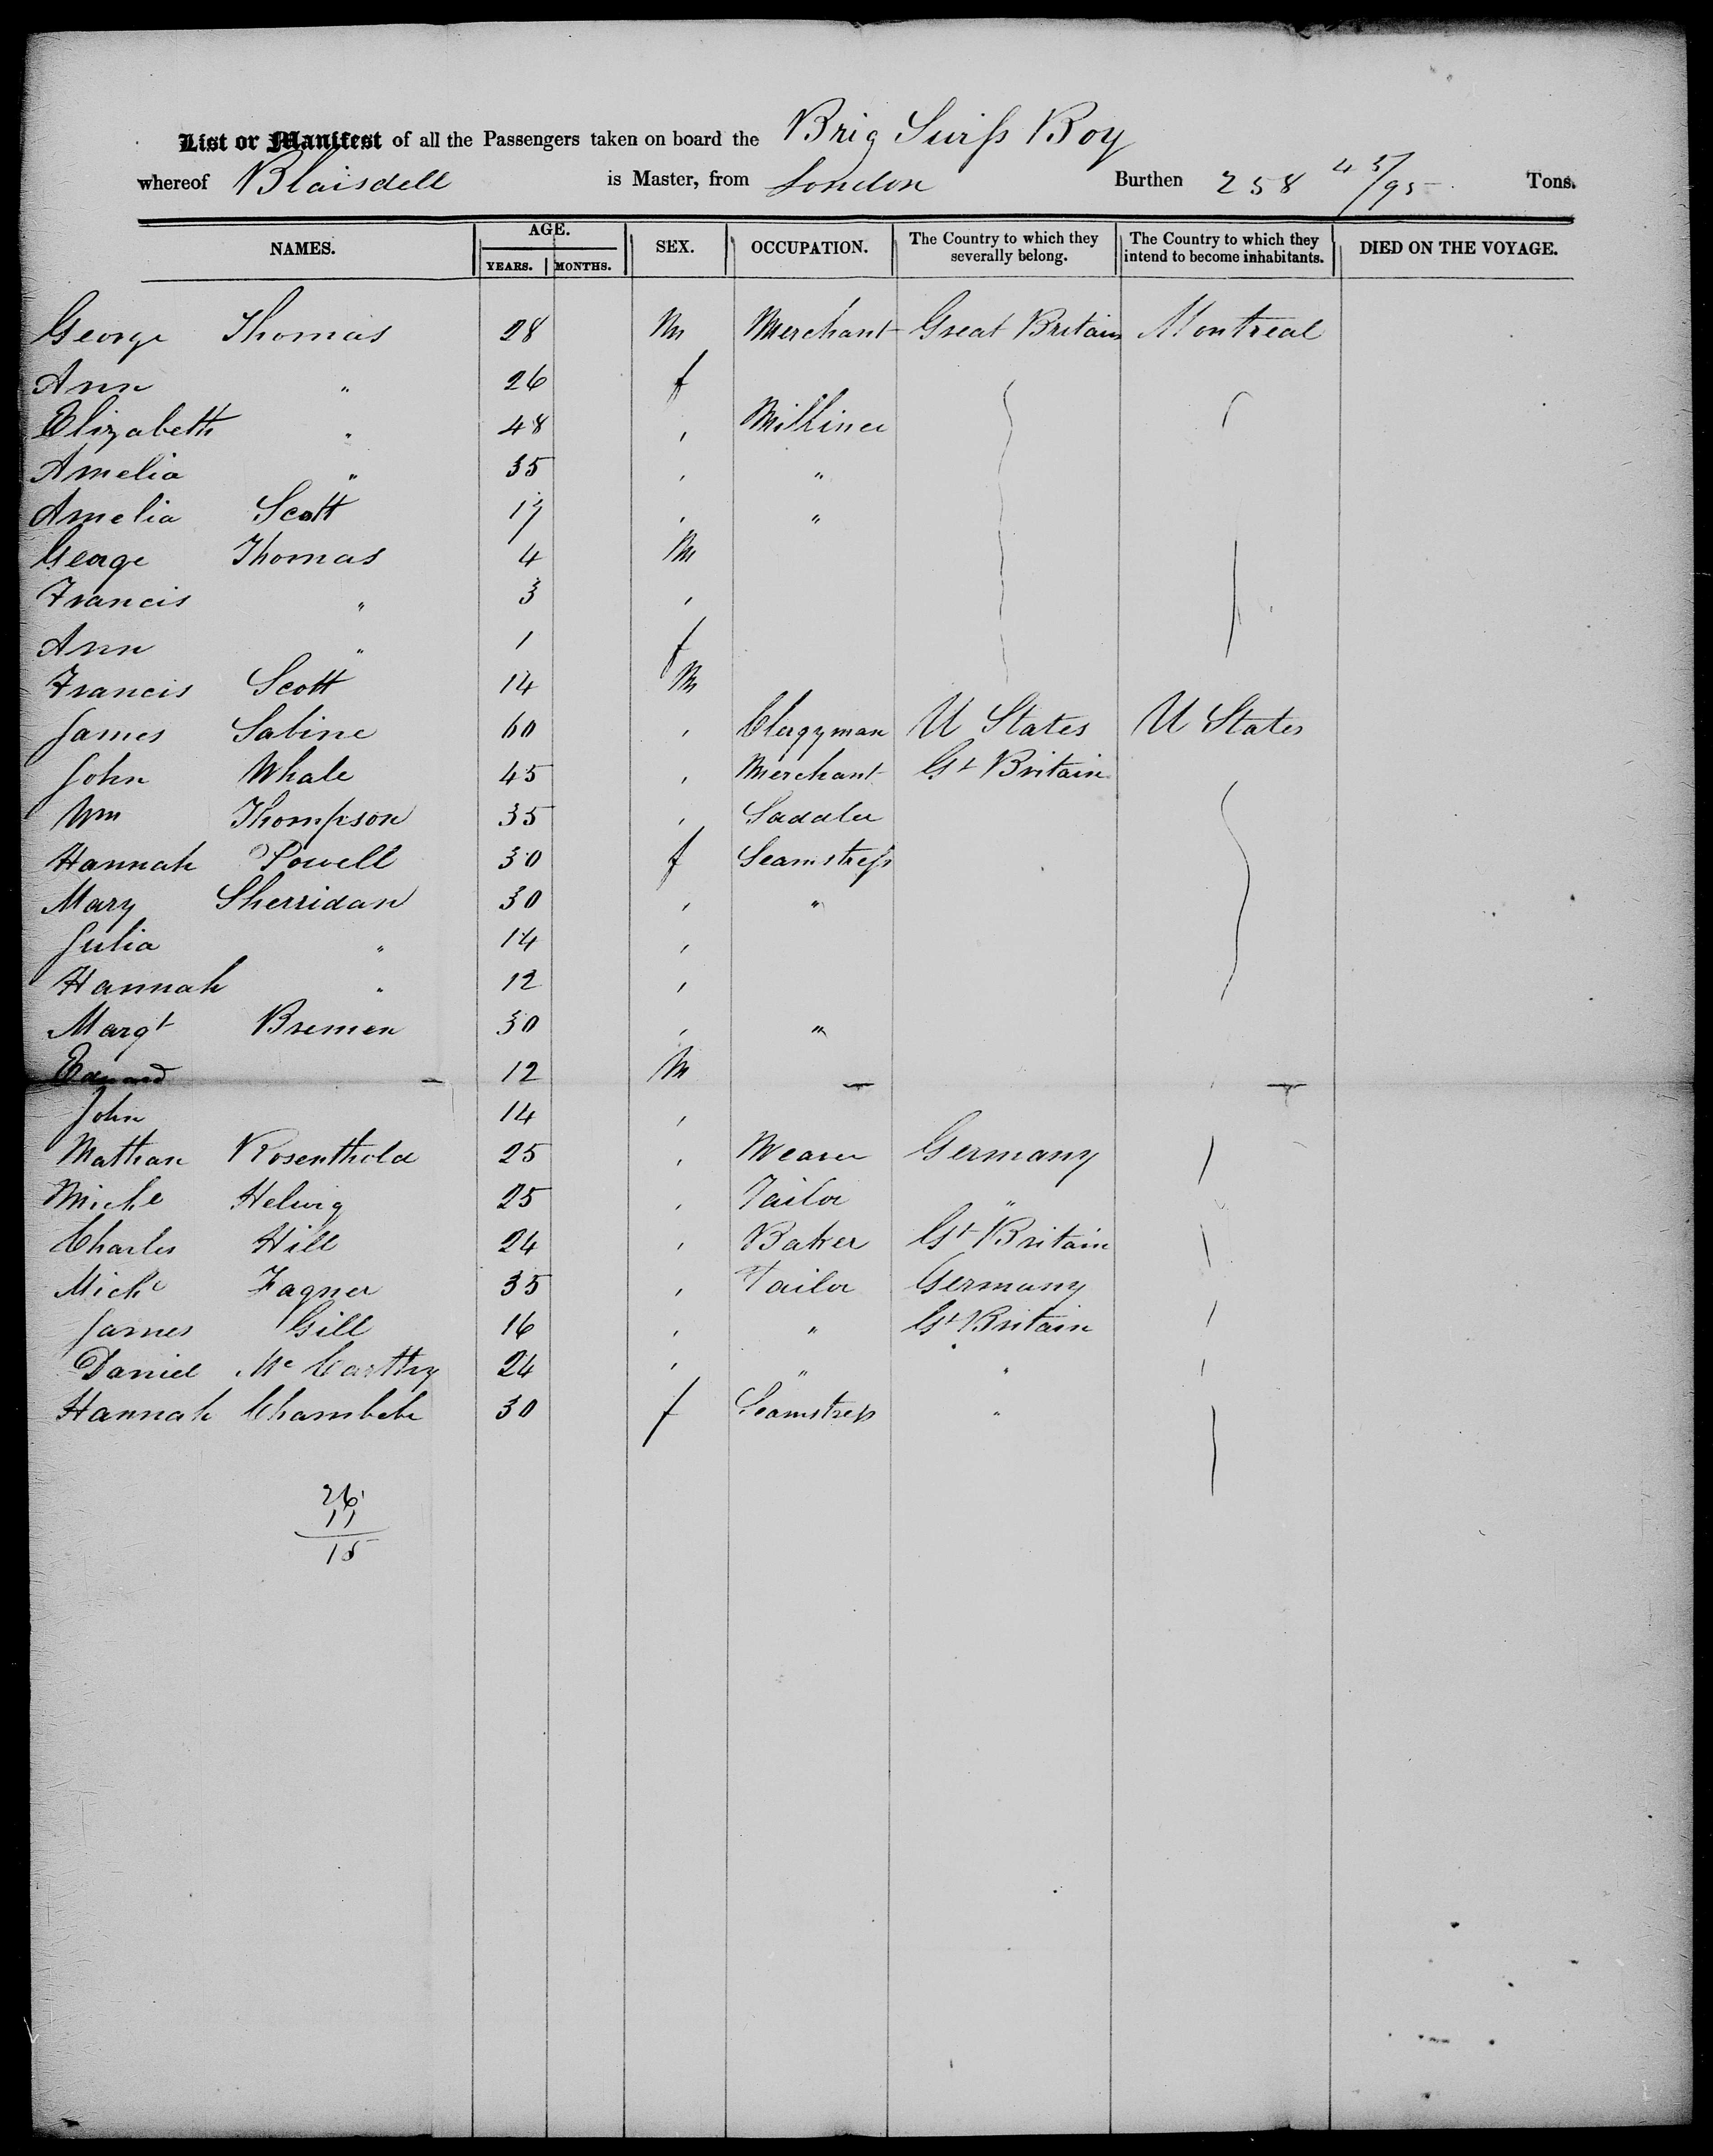 List or Manifest of all the Passengers taken on board the Brig Swiss Boy
whereof Blaisdell is Master, from London Burthen 258 45/95 Tons.
NAMES. AGE. YEARS. MONTHS. SEX. OCCUPATION. The Country to which they severally belong. The Country to which they intend to become inhabitants. DIED ON THE VOYAGE.
George Thomas 28 M Merchant Great Britain Montreal
Ann " 26 f
Elizabeth " 48 , Milliner
Amelia " 35 , "
Amelia Scott 17 , "
George Thomas 4 M
Francis " 3 ,
Ann " 1 f
Francis Scott 14 M
James Sabine 60 , Clergyman U States U States
John Whale 45 , Merchant Gt Britain
Wm Thompson 35 , Saddler
Hannah Powell 30 f Seamstress
Mary Sherridan 30 , "
Julia " 14 ,
Hannah " 12 ,
Margt Bremen 30 , "
Edward 12 M
John 14 ,
Nathan Rosenthold 25 , Weaver Germany
Michl Helwig 25 , Tailor "
Charles Hill 24 , Baker Gt Britain
Michl Fagner 35 , Tailor Germany
James Gill 16 , " Gt Britain
Daniel McCarthy 24 , " "
Hannah 30 f Seamstress "
26
11
15